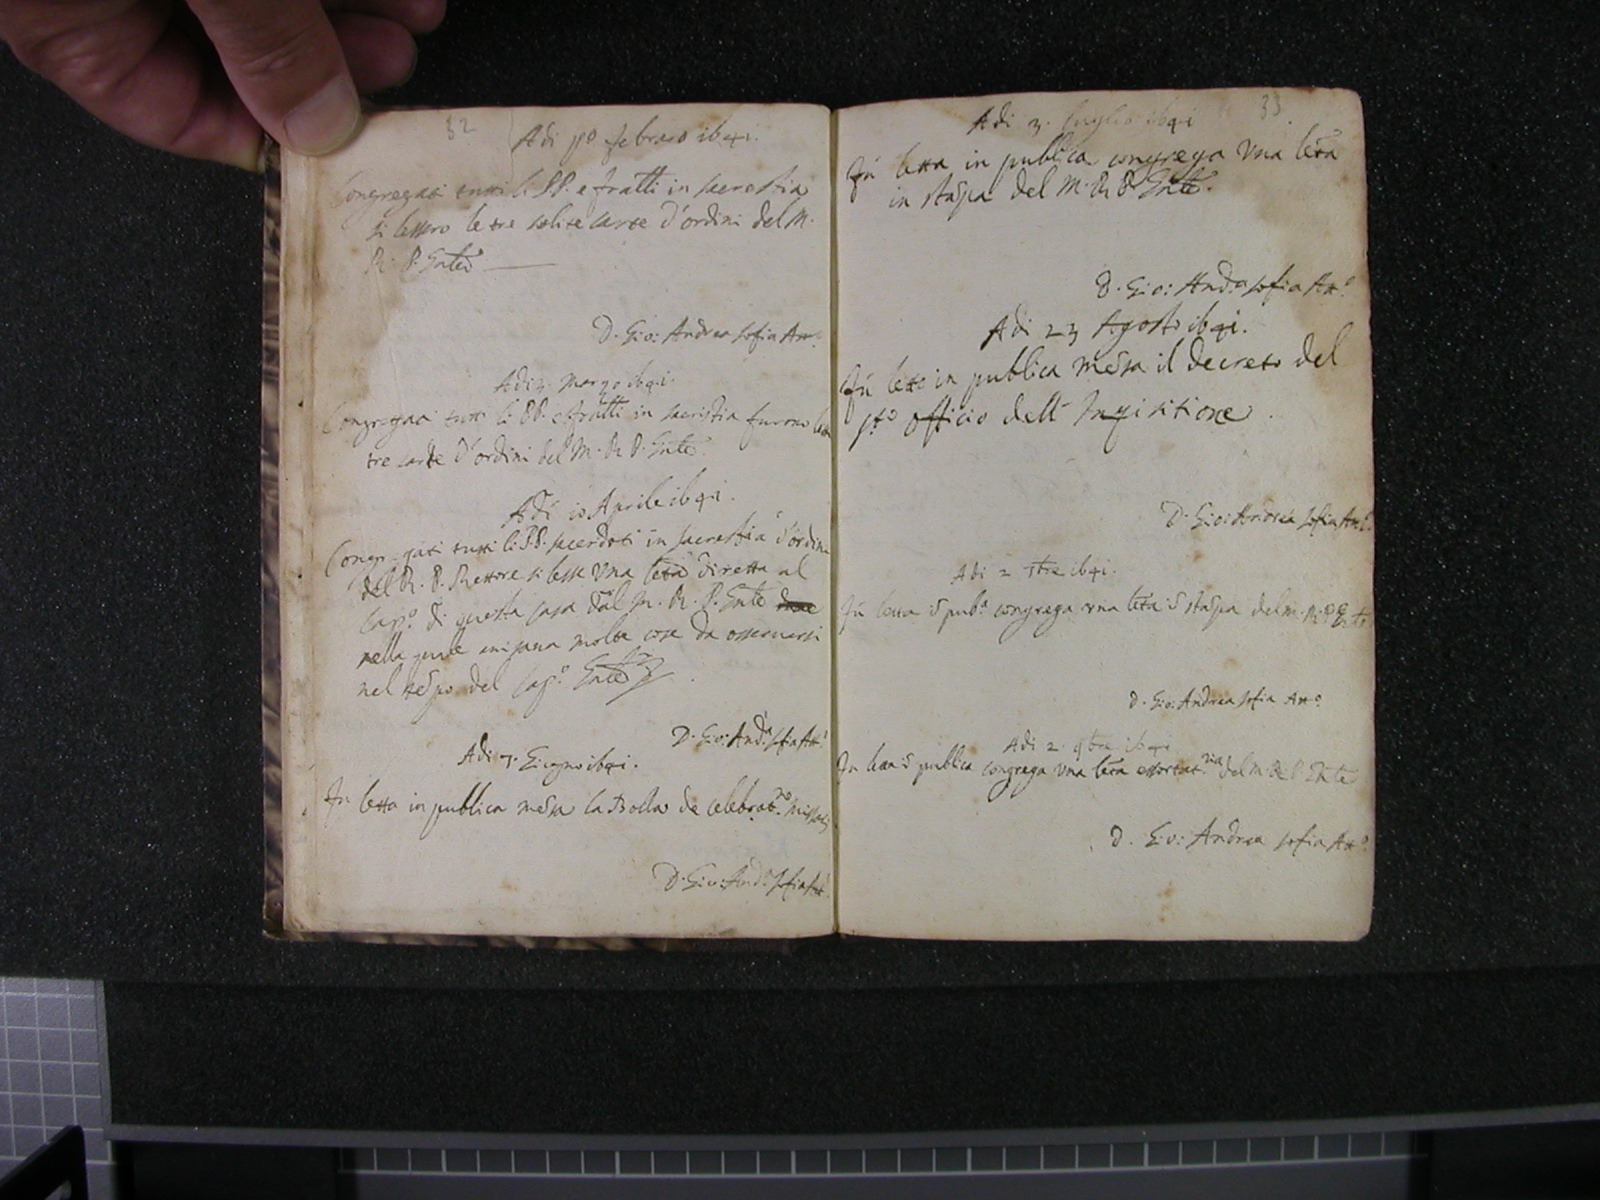 32
Adi p.o febraro 1641.
Congregati tutti li PP. e fratti in sacrestia
si lessero le tre solite carte d'ordini del M.
R. P. Gnle
D. Gio: Andrea Sofia Att.o
Adi 3. Marzo 1641.
Congregati tutti li PP. e fratti in sacristia furono lette
tre carte d'ordini del M. R. P. Gnle.
Adi 10 Aprile 1641.
Congregati tutti li PP. sacerdoti in sacrestia d'ordine
del R. P. Rettore si lesse una letra diretta al
Cap.o di questa casa dal M. R. P. Gnle
nella quale molte cose da osservarsi
nel tempo del Cap.o Gnle
D. Gio: And.a Sofia Att.o
Adi Giugno 1641.
Fu letta in publica mensa la Bolla de celebrat.ne missarum
D. Gio: And.a Sofia Att.o
33
Adi 3. luglio 1641
Fu letta in publica congrega una letra
in stampa del M. R. P. Gnle.
D. Gio: And.a Sofia Att.o
Adi 23 Agosto 1641.
Fu letto in publica mensa il decreto del
s.to officio dell' Inquisitione.
D. Gio: Andrea Sofia Att.o
Adi 2 7bre 1641.
Fu letta in pub.a congrega una letra in stampa del M. R. P. Gnle
D. Gio: Andrea Sofia Att.o
Adi 2. 9bre 1641
Fu letta in publica congrega una letra essortat.ria del M. R. P. Gnle
D. Gio: Andrea Sofia Att.o